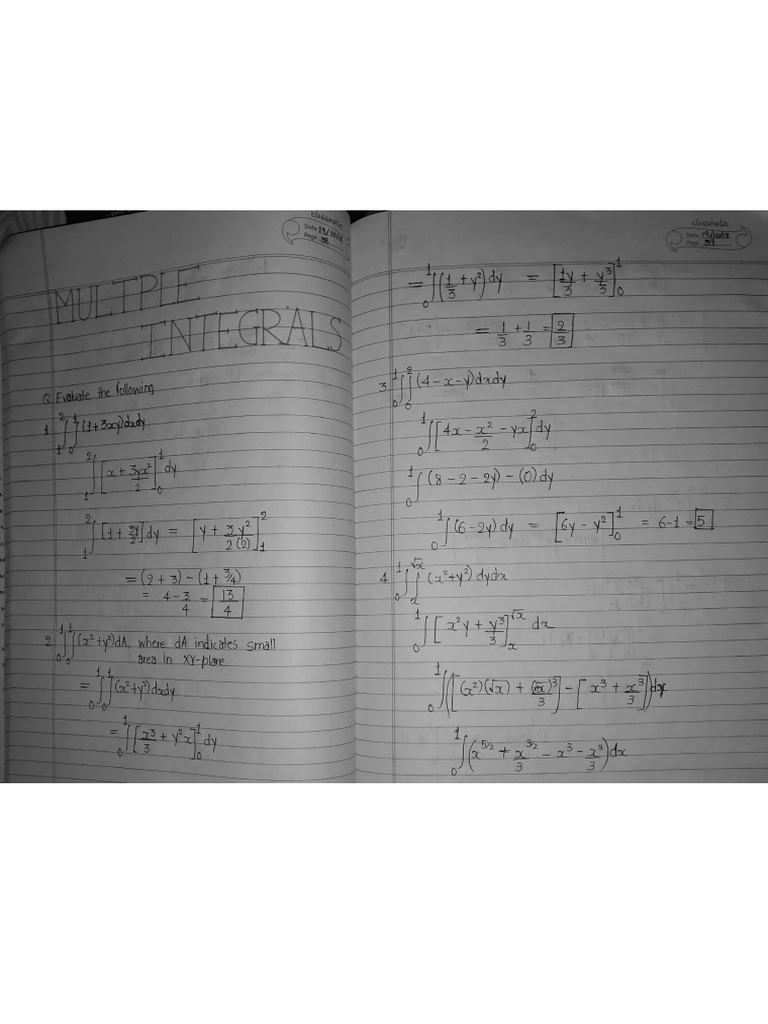 classmate
Date 19/10/18
Page 38
MULTPLE
INTEGRALS
Q. Evaluate the following
1. ₁∫² ₀∫¹ (1+3xy)dxdy
₁∫² [x + 3yx²/2]₀¹ dy
₁∫² [1 + 3y/2] dy = [y + 3y²/2(2)]₁²
= (2 + 3) - (1 + 3/4)
= 4 - 3/4 = 13/4
2. ₀∫¹ ₀∫¹ (x²+y²)dA, where dA indicates small
area in XY-plane
= ₀∫¹ ₀∫¹ (x²+y²)dxdy
= ₀∫¹ [x³/3 + y²x]₀¹ dy
classmate
Date 19/10/18
Page 39
= ₀∫¹ (1/3 + y²) dy = [1y/3 + y³/3]₀¹
= 1/3 + 1/3 = 2/3
3. ₀∫¹ ₀∫² (4-x-y)dxdy
₀∫¹ [4x - x²/2 - yx]₀² dy
₀∫¹ (8-2-2y)-(0)dy
₀∫¹ (6-2y)dy = [6y - y²]₀¹ = 6-1 = 5
4. ₀∫¹ ₓ∫^√x (x²+y²) dydx
₀∫¹ [x²y + y³/3]ₓ^√x dx
₀∫¹ ([(x²)(√x) + (√x)³/3] - [x³ + x³/3])dx
₀∫¹ (x^5/2 + x^3/2/3 - x³ - x³/3)dx